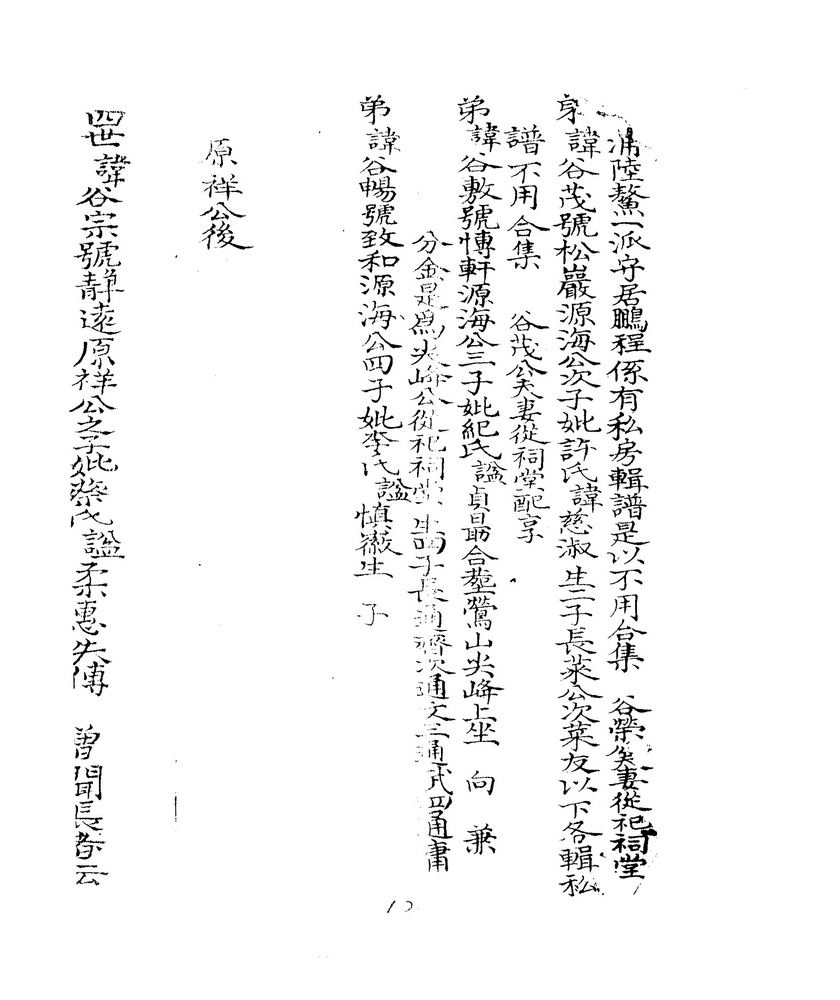 浦陸鰲一派守居鵬程係有私房輯譜是以不用合集 谷榮公妻從祀祠堂
弟諱谷茂號松巖源海公次子妣許氏諱慈淑生二子長萊公次菜友以下各輯私
譜不用合集 谷茂公夫妻從祠堂配享
弟諱谷敷號慱軒源海公三子妣紀氏謚貞勗合塟鶯山尖峰上坐 向 兼
分金是為尖峰公從祀祠堂生四子長通濟次通文三通武四通庸
弟諱谷暢號致和源海公四子妣李氏謚慎徽生 子
原祥公後
四世諱谷宗號靜遠原祥公之子妣蔡氏謚柔惠失傳 曾聞長者云
12